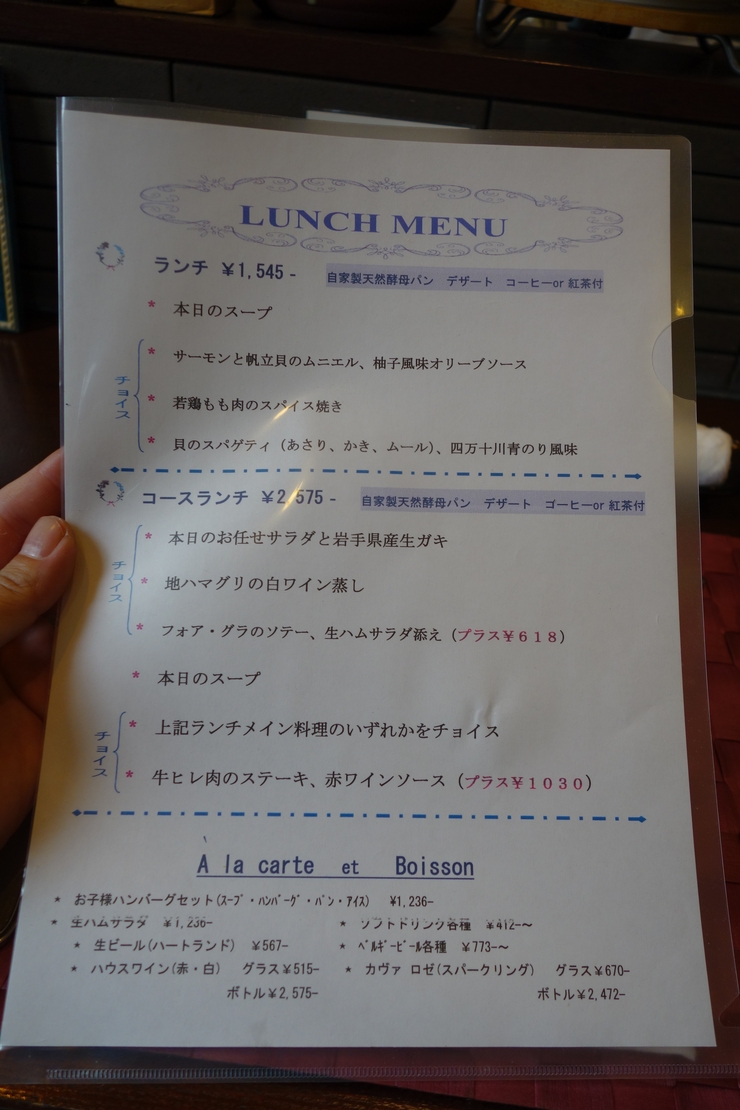 LUNCH MENU
ランチ ￥1,545 - 自家製天然酵母パン デザート コーヒーor 紅茶付
* 本日のスープ
チョイス
* サーモンと帆立貝のムニエル、柚子風味オリーブソース
* 若鶏もも肉のスパイス焼き
* 貝のスパゲティ（あさり、かき、ムール）、四万十川青のり風味
コースランチ ￥2,575 - 自家製天然酵母パン デザート コーヒーor 紅茶付
チョイス
* 本日のお任せサラダと岩手県産生ガキ
* 地ハマグリの白ワイン蒸し
* フォア・グラのソテー、生ハムサラダ添え（プラス￥６１８）
* 本日のスープ
チョイス
* 上記ランチメイン料理のいずれかをチョイス
* 牛ヒレ肉のステーキ、赤ワインソース（プラス￥１０３０）
À la carte et Boisson
* お子様ハンバーグセット(ｽｰﾌﾟ・ﾊﾝﾊﾞｰｸﾞ・ﾊﾟﾝ・ｱｲｽ) ￥1,236-
* 生ハムサラダ ￥1,236- * ソフトドリンク各種 ￥412-～
* 生ビール(ハートランド) ￥567- * ﾍﾞﾙｷﾞｰﾋﾞｰﾙ各種 ￥773-～
* ハウスワイン(赤・白) グラス￥515- * カヴァ ロゼ(スパークリング) グラス￥670-
ボトル￥2,575- ボトル￥2,472-